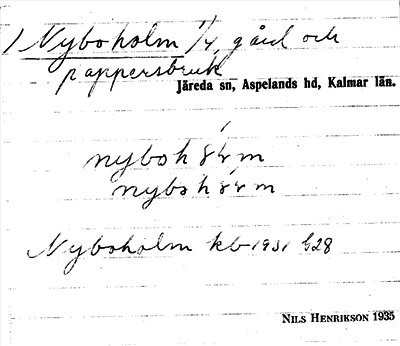 1 Nyboholm 1/4, gård och
pappersbruk
Järeda sn, Aspelands hd, Kalmar län.
Nyboholm kb 1931 b28
NILS HENRIKSON 1935